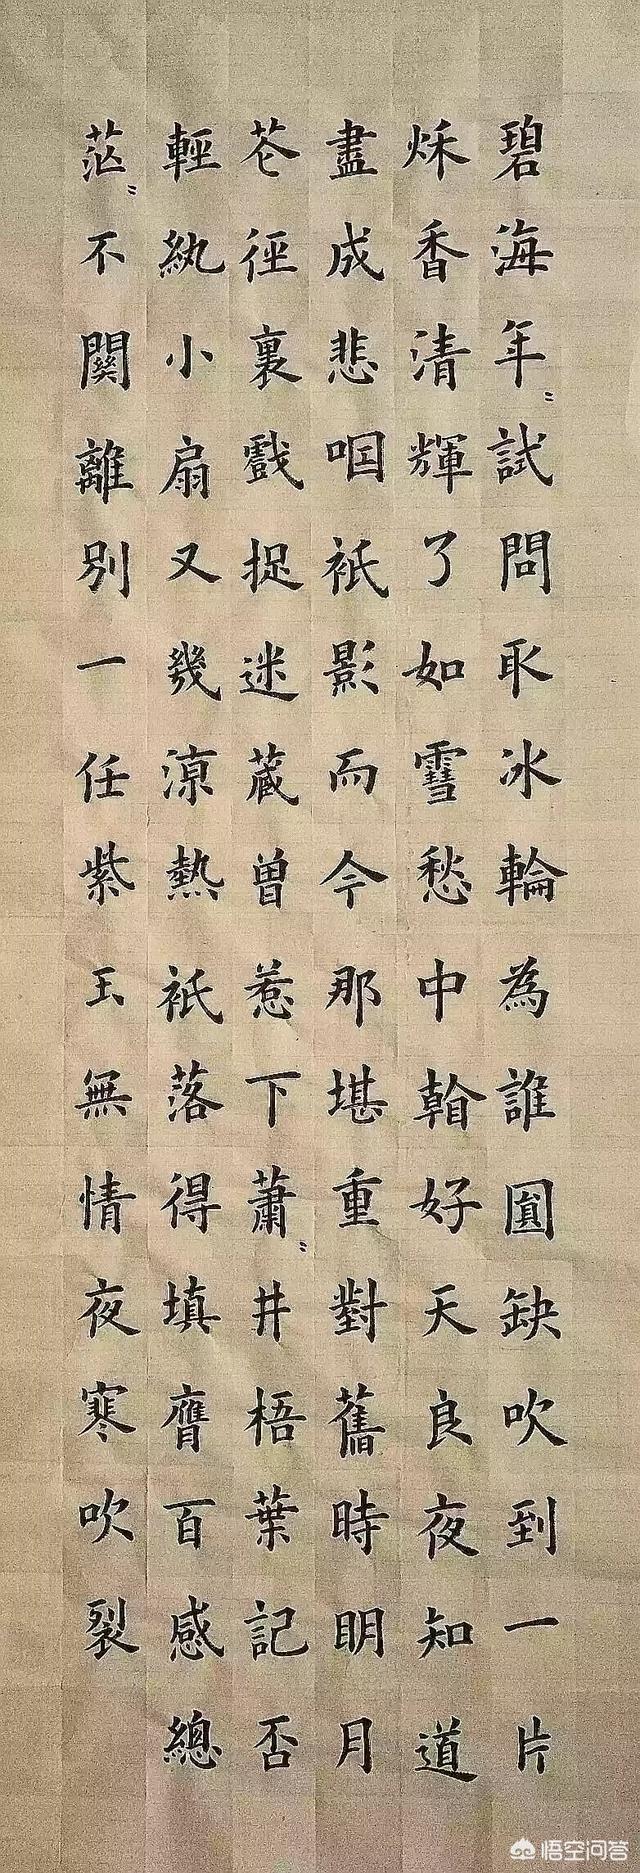 碧海年〻試問取冰輪為誰圓缺吹到一片
秌香清輝了如雪愁中看好天良夜知道
盡成悲咽祇影而今那堪重對舊時明月
芲徑裏戲捉迷藏曾惹下蕭〻井梧葉記否
輕紈小扇又幾涼熱祇落得填膺百感總
茫〻不關離別一任紫玉無情夜寒吹裂
悟空问答